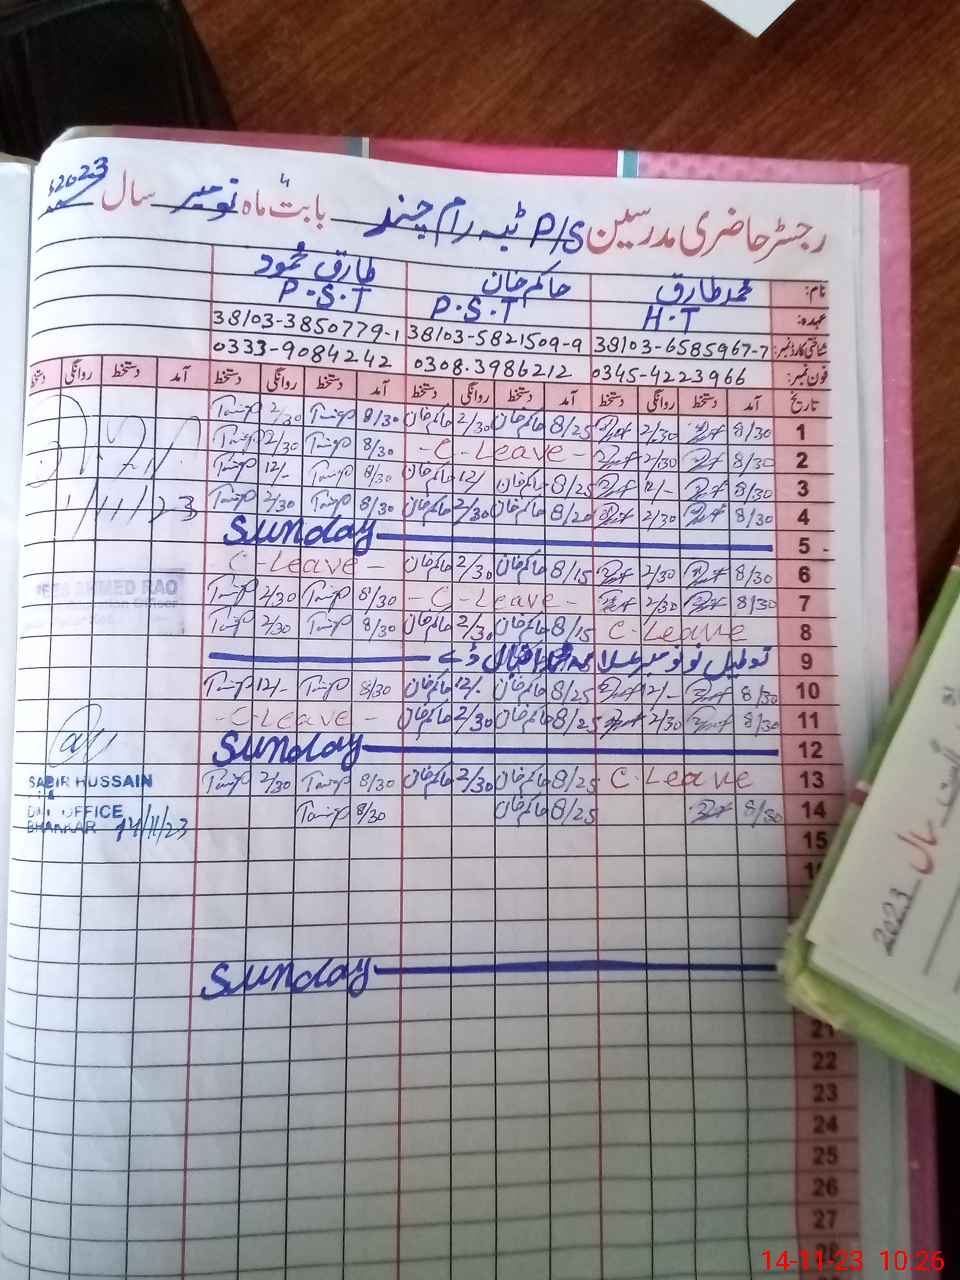 رجسٹر حاضری مدرسین P/S ٹبہ رام چند بابت ماہ نومبر سال 2023
4
نام: محمد طارق حاکم خان طارق محمود
عہدہ: H.T P.S.T P.S.T
شناختی کارڈ نمبر: 38103-6585967-7 38103-5821509-9 38103-3850779-1
فون نمبر: 0345-4223966 0308.3986212 0333-9084242
تاریخ آمد دستخط روانگی دستخط آمد دستخط روانگی دستخط آمد دستخط روانگی دستخط آمد دستخط روانگی دستخط
1 8/30 2/30 8/25 حاکم خان 2/30 حاکم خان 8/30 Tariq 2/30 Tariq
2 8/30 2/30 - C-Leave - 8/30 Tariq 2/30 Tariq
3 8/30 12/- 8/25 حاکم خان 12/ حاکم خان 8/30 Tariq 12/- Tariq
4 8/30 2/30 8/20 حاکم خان 2/30 حاکم خان 8/30 Tariq 2/30 Tariq
1/11/23
5 Sunday
6 8/30 2/30 8/15 حاکم خان 2/30 حاکم خان - C-Leave -
7 8/30 2/30 - C-Leave - 8/30 Tariq 2/30 Tariq
AHMED RAO
8 C-Leave 8/15 حاکم خان 2/30 حاکم خان 8/30 Tariq 2/30 Tariq
9 نو نومبر علامہ محمد اقبال ڈے
10 8/30 12/- 8/25 حاکم خان 12/. حاکم خان 8/30 Tariq 12/- Tariq
11 8/30 2/30 8/25 حاکم خان 2/30 حاکم خان - C-Leave -
12 Sunday
13 C-Leave 8/25 حاکم خان 2/30 حاکم خان 8/30 Tariq 2/30 Tariq
SABIR HUSSAIN
14 8/30 8/25 حاکم خان 8/30 Tariq
OFFICE
BHAKKAR 14/11/23
15
Sunday
21
22
23
24
25
26
27
28
سال 2023
14-11-23 10:26